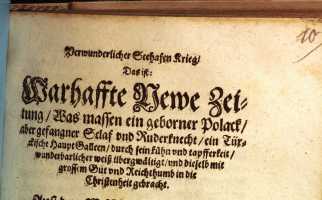 10
Verwunderlicher Seehafen Krieg/
Das ist:
Warhaffte Newe Zei-
tung/ Was massen ein geborner Polack/
aber gefangner Sclaf vnd Ruderknecht/ ein Tür-
ckische Haupt Galleen/ durch sein kühn vnd tapfferkeit/
wunderbarlicher weiß übergwältigt/ vnd dieselb mit
grossem Gut vnd Reichthumb in die
Christenheit gebracht.